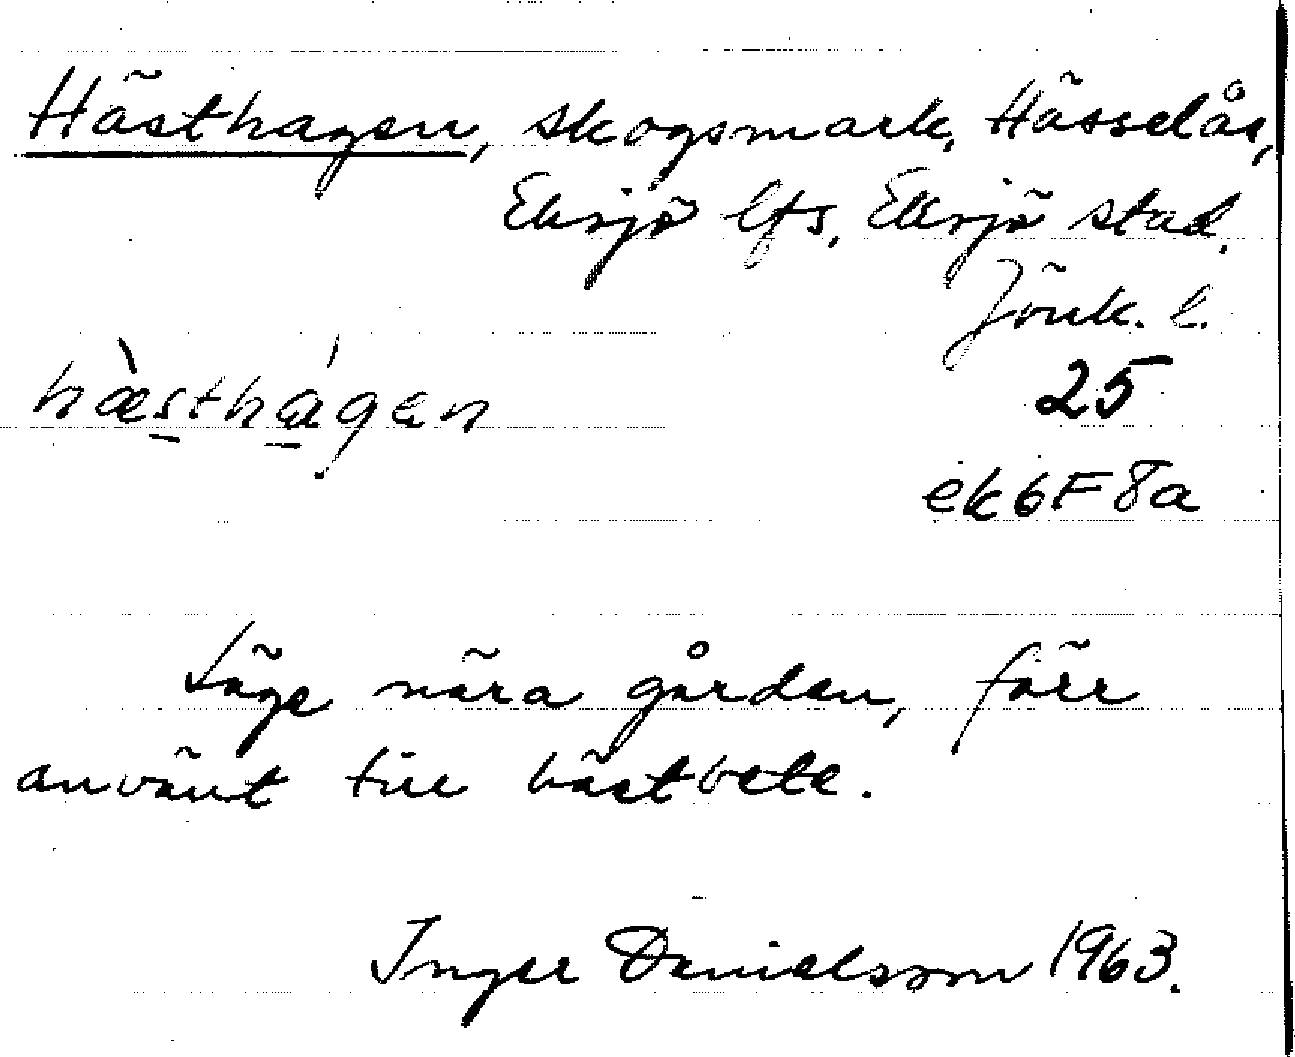 Hästhagen, skogsmark, Hässelås,
Eksjö lfs, Eksjö stad.
Jönk. l.
hæ̀sthágen
25
ek6F8a
Läge nära gården, förr
använt till hästbete.
Inger Danielsson 1963.